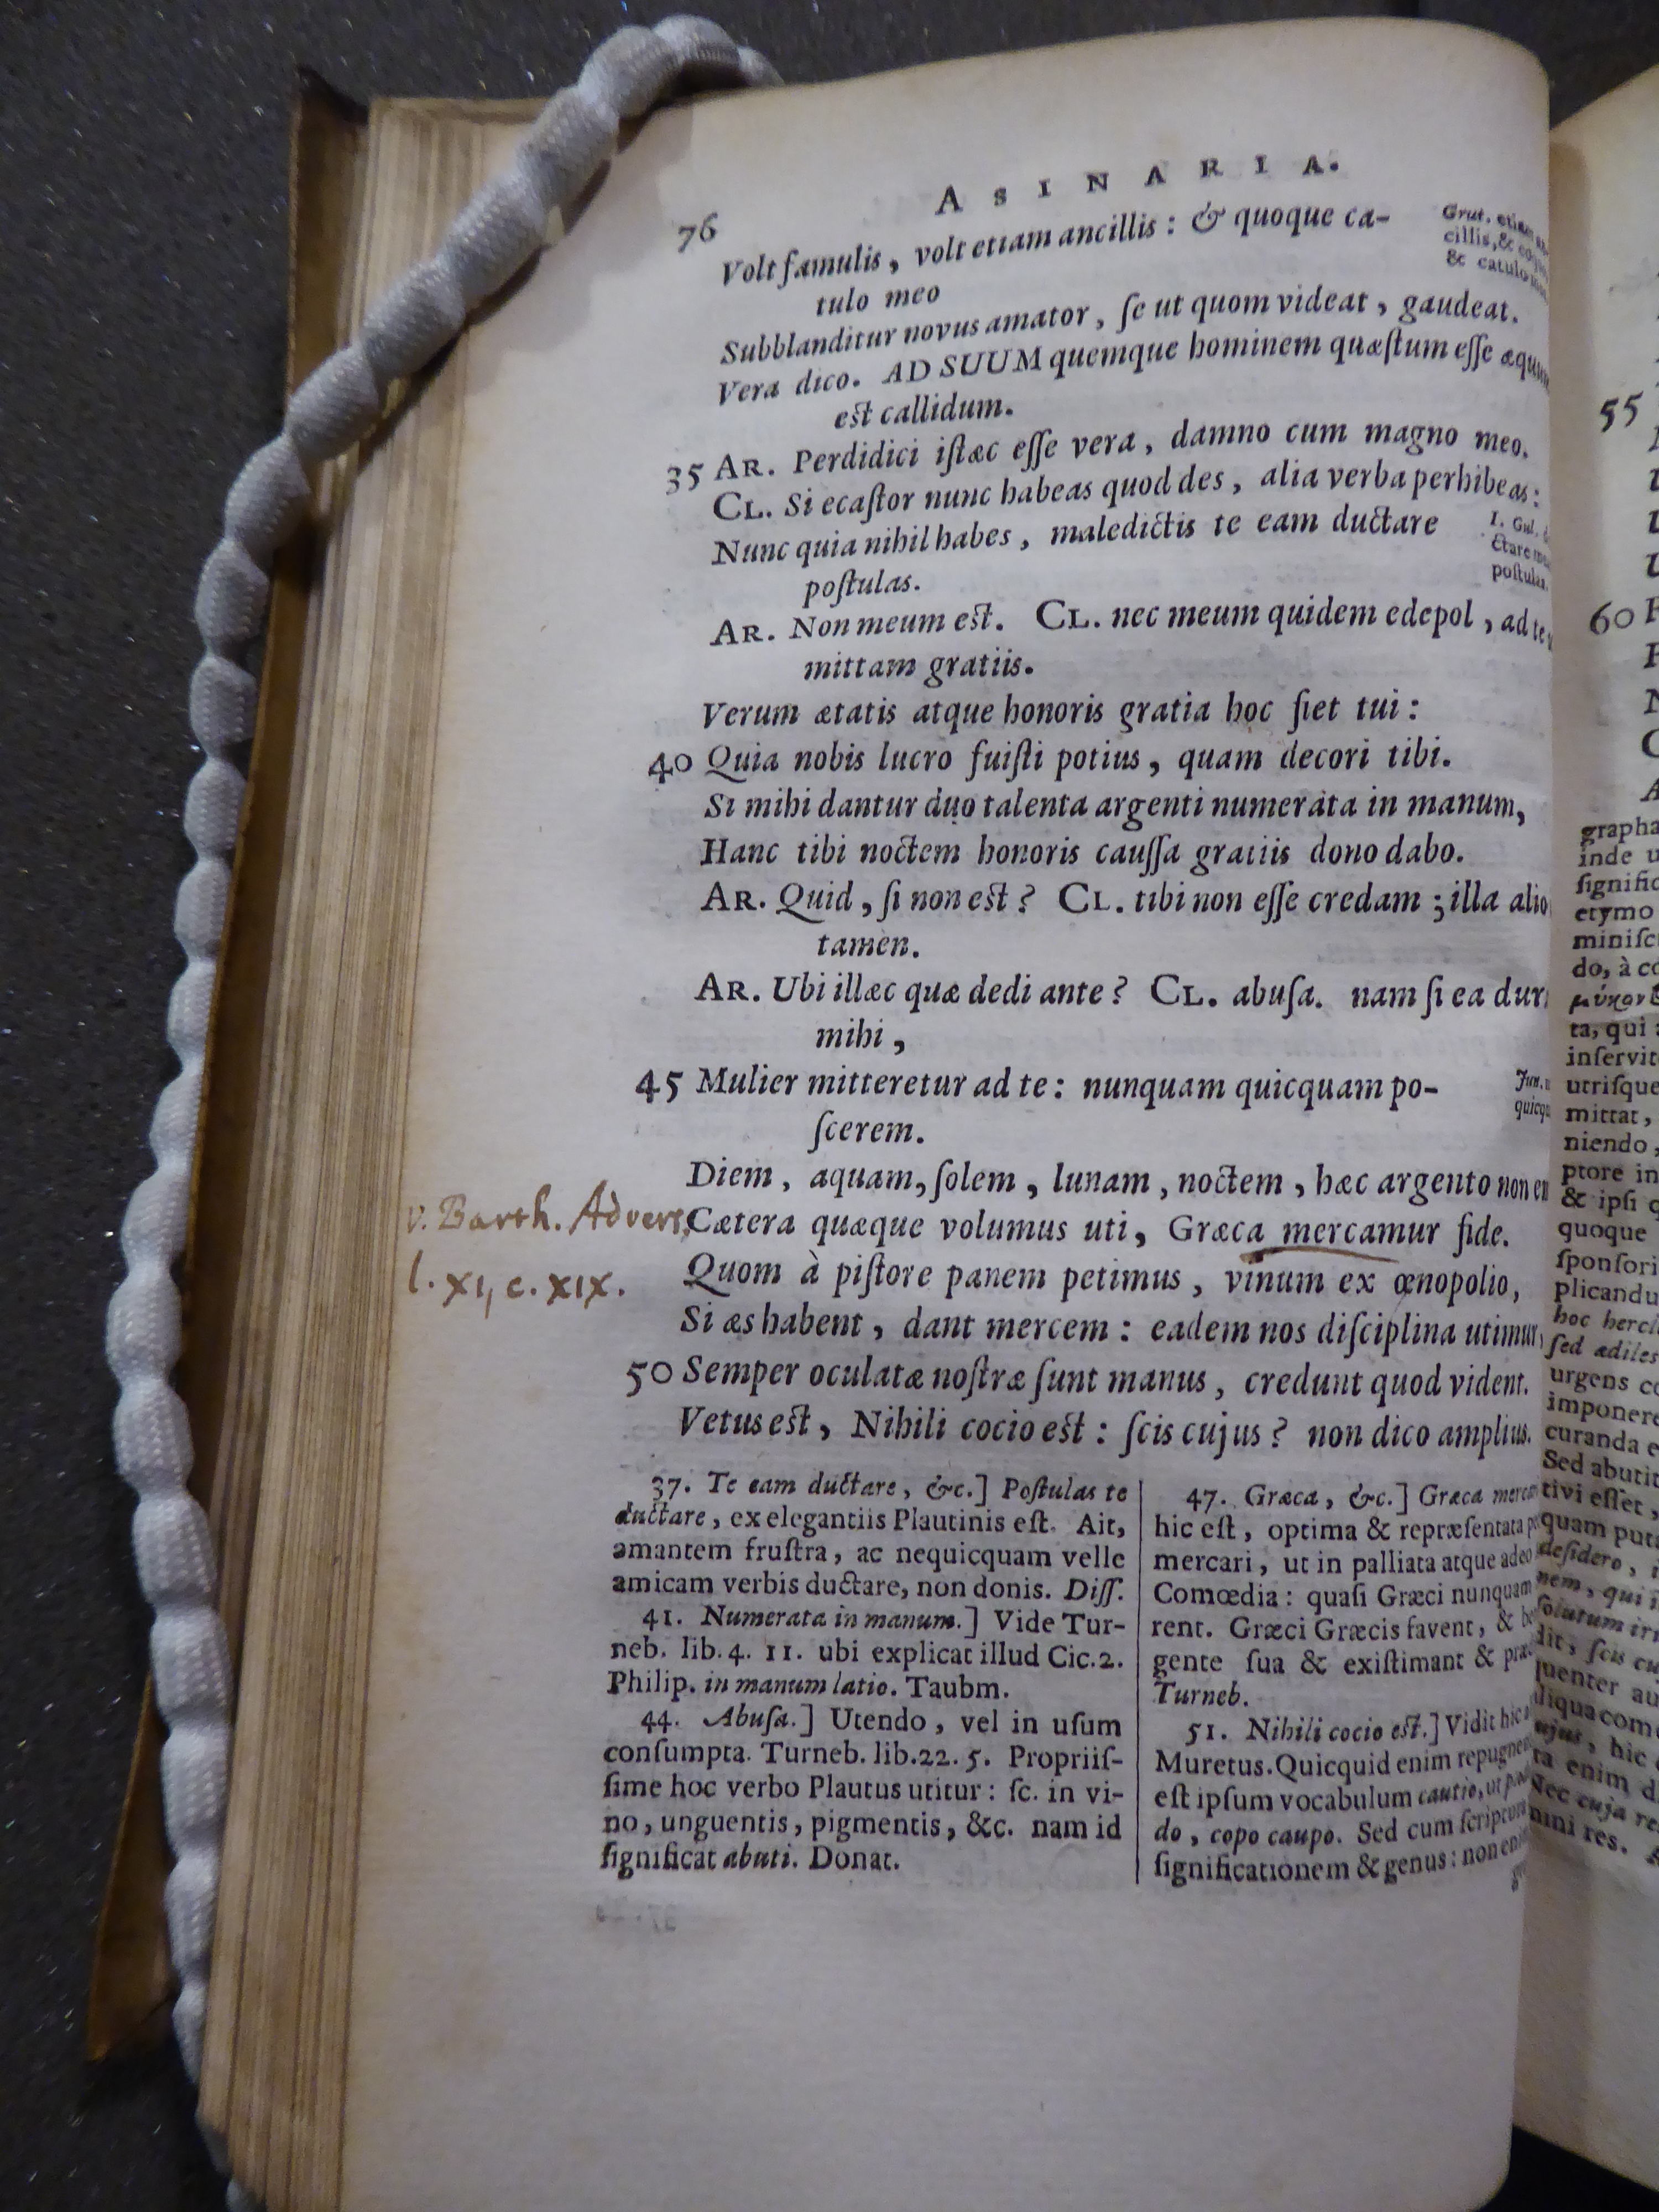 76
ASINARIA.
Volt famulis, volt etiam ancillis: & quoque ca-
tulo meo
Grut.
cillis, &
& catulo
Subblanditur novus amator, ſe ut quom videat, gaudeat.
Vera dico. AD SUUM quemque hominem quæſtum eſſe
est callidum.
35 AR. Perdidici iſtæc eſſe vera, damno cum magno meo.
CL. Si ecaſtor nunc habeas quod des, alia verba perhibeas:
Nunc quia nihil habes, maledictis te eam ductare
poſtulas.
I. Gul.
ctare
poſtulas.
AR. Non meum est. CL. nec meum quidem edepol, ad te
mittam gratiis.
Verum ætatis atque honoris gratia hoc fiet tui:
40 Quia nobis lucro fuiſti potius, quam decori tibi.
Si mihi dantur duo talenta argenti numerata in manum,
Hanc tibi noctem honoris cauſſa gratiis dono dabo.
AR. Quid, ſi non est? CL. tibi non eſſe credam; illa alio
tamen.
AR. Ubi illæc quæ dedi ante? CL. abuſa. nam ſi ea dur
mihi,
45 Mulier mitteretur ad te: nunquam quicquam po-
ſcerem.
Jun.
quicqu
Diem, aquam, ſolem, lunam, noctem, hæc argento non
v. Barth. Advers.
l. XI, c. XIX.
Cætera quæque volumus uti, Græca mercamur fide.
Quom à piſtore panem petimus, vinum ex œnopolio,
Si æs habent, dant mercem: eadem nos diſciplina utimur,
50 Semper oculatæ noſtræ ſunt manus, credunt quod vident.
Vetus est, Nihili cocio est: ſcis cujus? non dico amplius.
37. Te eam ductare, &c.] Poſtulas te
ductare, ex elegantiis Plautinis eſt. Ait,
amantem fruſtra, ac nequicquam velle
amicam verbis ductare, non donis. Diſſ.
41. Numerata in manum.] Vide Tur-
neb. lib. 4. 11. ubi explicat illud Cic. 2.
Philip. in manum latio. Taubm.
44. Abuſa.] Utendo, vel in uſum
conſumpta. Turneb. lib. 22. 5. Propriiſ-
ſime hoc verbo Plautus utitur: ſc. in vi-
no, unguentis, pigmentis, &c. nam id
ſignificat abuti. Donat.
47. Græca, &c.] Græca
hic eſt, optima & repræſentata
mercari, ut in palliata atque adeo
Comœdia: quaſi Græci nunquam
rent. Græci Græcis favent, &
gente ſua & exiſtimant &
Turneb.
51. Nihili cocio est.] Vidit hic
Muretus. Quicquid enim
eſt ipſum vocabulum cautio, ut
do, copo caupo. Sed cum
ſignificationem & genus: non
55
60
grapha
inde
ſignific
etymo
miniſc
do, à
ta, qui
inſervit
utriſque
mittat,
niendo,
ptore in
& ipſi
quoque
ſponſori
plicandu
hoc
ſed ædiles
urgens
imponere
curanda
Sed
tivi eſſet,
quam
deſidero,
nem, qui
ſolutum
dit, ſcis
quenter
aliqua
cujus, hic
enim
Nec cuja
res.